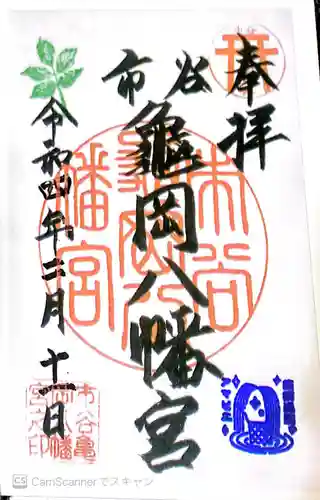 奉拝
市谷
亀岡八幡宮
令和四年二月十一日
市谷亀
岡八幡
宮之印
CS CamScannerでスキャン